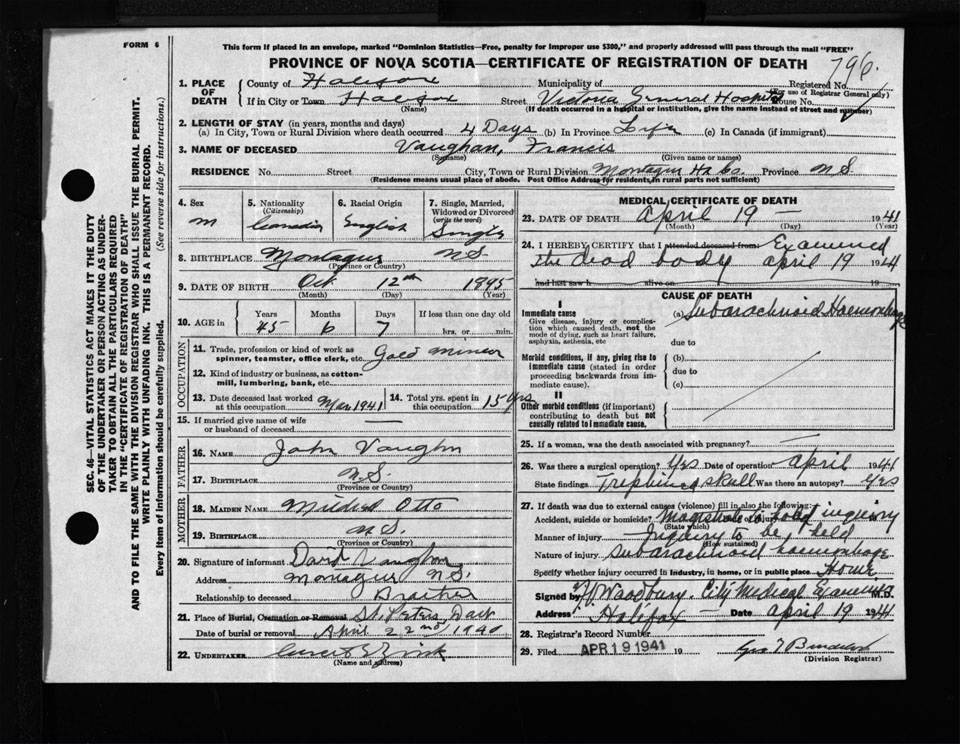 FORM 6
This form if placed in an envelope, marked "Dominion Statistics—Free, penalty for improper use $300," and properly addressed will pass through the mail "FREE"
PROVINCE OF NOVA SCOTIA—CERTIFICATE OF REGISTRATION OF DEATH
796.
1. PLACE OF DEATH
County of Halifax Municipality of Registered No.
(For use of Registrar General only)
If in City or Town Halifax Street Victoria General Hospital House No.
(Name) (If death occurred in a hospital or institution, give the name instead of street and number)
2. LENGTH OF STAY (in years, months and days)
(a) In City, Town or Rural Division where death occurred 4 Days (b) In Province Life (c) In Canada (if immigrant)
3. NAME OF DECEASED Vaughan, Francis
(Surname) (Given name or names)
RESIDENCE No. Street City, Town or Rural Division Montague Hx Co. Province N S
(Residence means usual place of abode. Post Office Address for residents in rural parts not sufficient)
4. Sex M
5. Nationality (Citizenship) Canadian
6. Racial Origin English
7. Single, Married, Widowed or Divorced (write the word) Single
8. BIRTHPLACE Montague N.S.
(Province or Country)
9. DATE OF BIRTH Oct 12th 1895
(Month) (Day) (Year)
10. AGE in Years Months Days If less than one day old
45 6 7 hrs. or min.
OCCUPATION
11. Trade, profession or kind of work as spinner, teamster, office clerk, etc. Gold Miner
12. Kind of industry or business, as cotton-mill, lumbering, bank, etc.
13. Date deceased last worked at this occupation Mar 1941
14. Total yrs. spent in this occupation 15 yrs
15. If married give name of wife or husband of deceased —
FATHER
16. NAME John Vaughn
17. BIRTHPLACE N.S.
(Province or Country)
MOTHER
18. MAIDEN NAME Mildred Otto
19. BIRTHPLACE N.S.
(Province or Country)
20. Signature of informant David Vaughn
Address Montague N.S.
Relationship to deceased Brother
21. Place of Burial, Cremation or Removal St. Peters, Dart
Date of burial or removal April 22nd 1940
22. UNDERTAKER
(Name and address)
MEDICAL CERTIFICATE OF DEATH
23. DATE OF DEATH April 19 — 1941
(Month) (Day) (Year)
24. I HEREBY CERTIFY that I attended deceased from: Examined
the dead body April 19 1941
and last saw h alive on 19
CAUSE OF DEATH
I
Immediate cause
Give disease, injury or complication which caused death, not the mode of dying, such as heart failure, asphyxia, asthenia, etc
(a) Subarachnoid Haemorrhage
due to
Morbid conditions, if any, giving rise to immediate cause (stated in order proceeding backwards from immediate cause).
(b)
due to
(c)
II
Other morbid conditions (if important) contributing to death but not causally related to immediate cause.
25. If a woman, was the death associated with pregnancy? —
26. Was there a surgical operation? Yes Date of operation April 1941
State findings Trephined skull Was there an autopsy? Yes
27. If death was due to external causes (violence) fill in also the following:
Accident, suicide or homicide? Magistrate to hold inquiry
(State which)
Manner of injury Inquiry to be held
(How sustained)
Nature of injury Subarachnoid haemorrhage
Specify whether injury occurred in industry, in home, or in public place Home
Signed by Woodbury. City Medical Examiner
Address Halifax — Date April 19 1941
28. Registrar's Record Number
29. Filed APR 19 1941 19
(Division Registrar)
SEC. 46—VITAL STATISTICS ACT MAKES IT THE DUTY
OF THE UNDERTAKER OR PERSON ACTING AS UNDERTAKER TO OBTAIN ALL THE PARTICULARS REQUIRED
IN THE "CERTIFICATE OF REGISTRATION OF DEATH"
AND TO FILE THE SAME WITH THE DIVISION REGISTRAR WHO SHALL ISSUE THE BURIAL PERMIT.
WRITE PLAINLY WITH UNFADING INK. THIS IS A PERMANENT RECORD.
Every item of information should be carefully supplied. (See reverse side for instructions.)